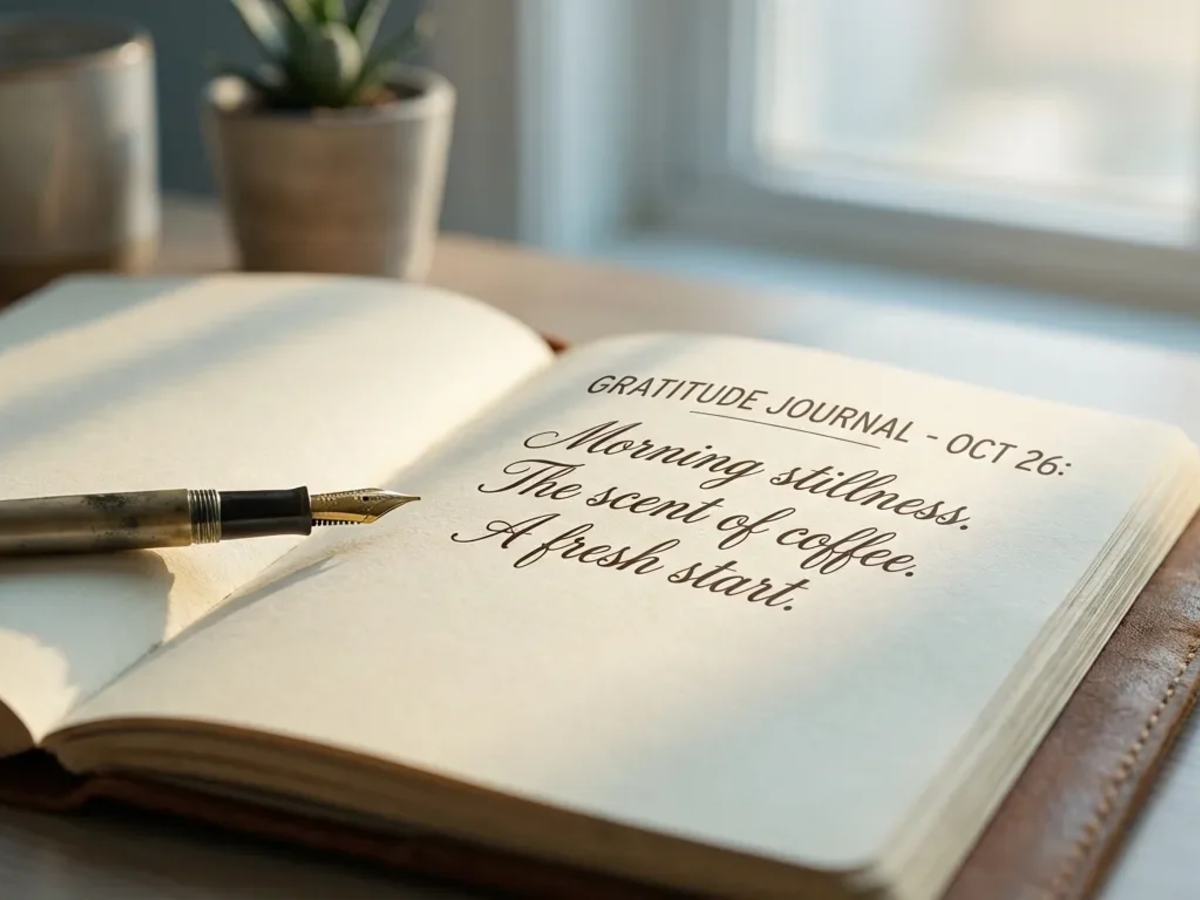 GRATITUDE JOURNAL - OCT 26:
Morning stillness.
The scent of coffee.
A fresh start.